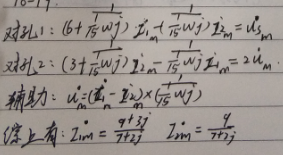 对孔1: (6+\frac{1}{\frac{1}{15}wj}) \dot{I}_{1m} - (\frac{1}{\frac{1}{15}wj}) \dot{I}_{2m} = \dot{u}_{sm}
对孔2: (3+\frac{1}{\frac{1}{15}wj}) \dot{I}_{2m} - \frac{1}{\frac{1}{15}wj} \dot{I}_{1m} = 2\dot{u}_m.
辅助: \dot{u}_m = (\dot{I}_{1m} - \dot{I}_{2m}) × (\frac{1}{\frac{1}{15}wj})
综上有: \dot{I}_{1m} = \frac{9+3j}{7+2j} \dot{I}_{2m} = \frac{9}{7+2j}